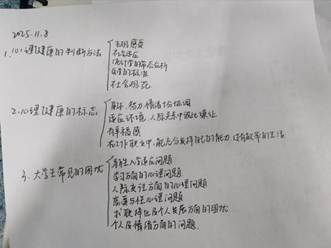 2025.11.8
1.心理健康的判断方法
主观感受
社会适应
统计学的常态分析
医学的标准
社会规范
2.心理健康的标志
身体、智力、情绪协调
适应环境,人际关系中彼此谦让
有幸福感
在工作职业中,能充分发挥自己的能力,过有效率的生活
3.大学生常见的困扰
新生入学适应问题
学习方面的心理问题
人际交往方面的心理问题
恋爱与性心理问题
求职择业与个人发展方面的困扰
个人与情绪方面的问题